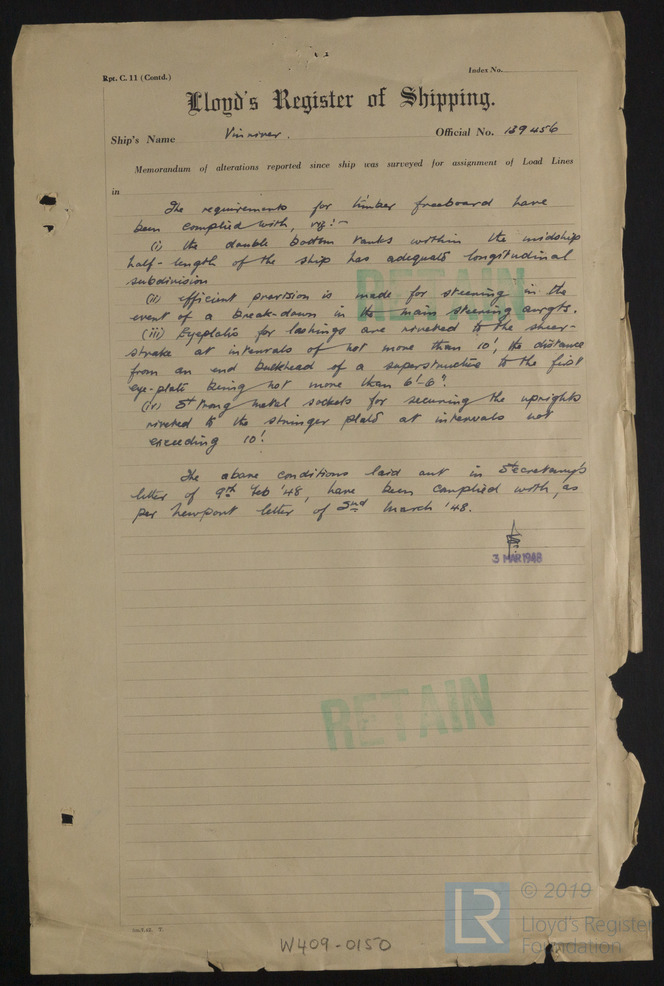 Rpt. C. 11 (Contd.)
Index No.
Lloyd's Register of Shipping.
Ship's Name Vinriver.
Official No. 139456
Memorandum of alterations reported since ship was surveyed for assignment of Load Lines
in
The requirements for timber freeboard have
been complied with, viz:-
(i) the double bottom tanks within the midship
half-length of the ship has adequate longitudinal
subdivision
RETAIN
(ii) efficient provision is made for steering in the
event of a break-down in the main steering arrgts.
(iii) Eyeplates for lashings are riveted to the sheer-
strake at intervals of not more than 10', the distance
from an end bulkhead of a superstructure to the first
eye-plate being not more than 6'-6".
(iv) Strong metal sockets for securing the uprights
riveted to the stringer plate at intervals not
exceeding 10'.
The above conditions laid out in Secretary's
letter of 9th Feb '48, have been complied with, as
per Newport letter of 2nd March '48.
3 MAR 1948
RETAIN
© 2019
LR
Lloyd's Register
Foundation
W409-0150